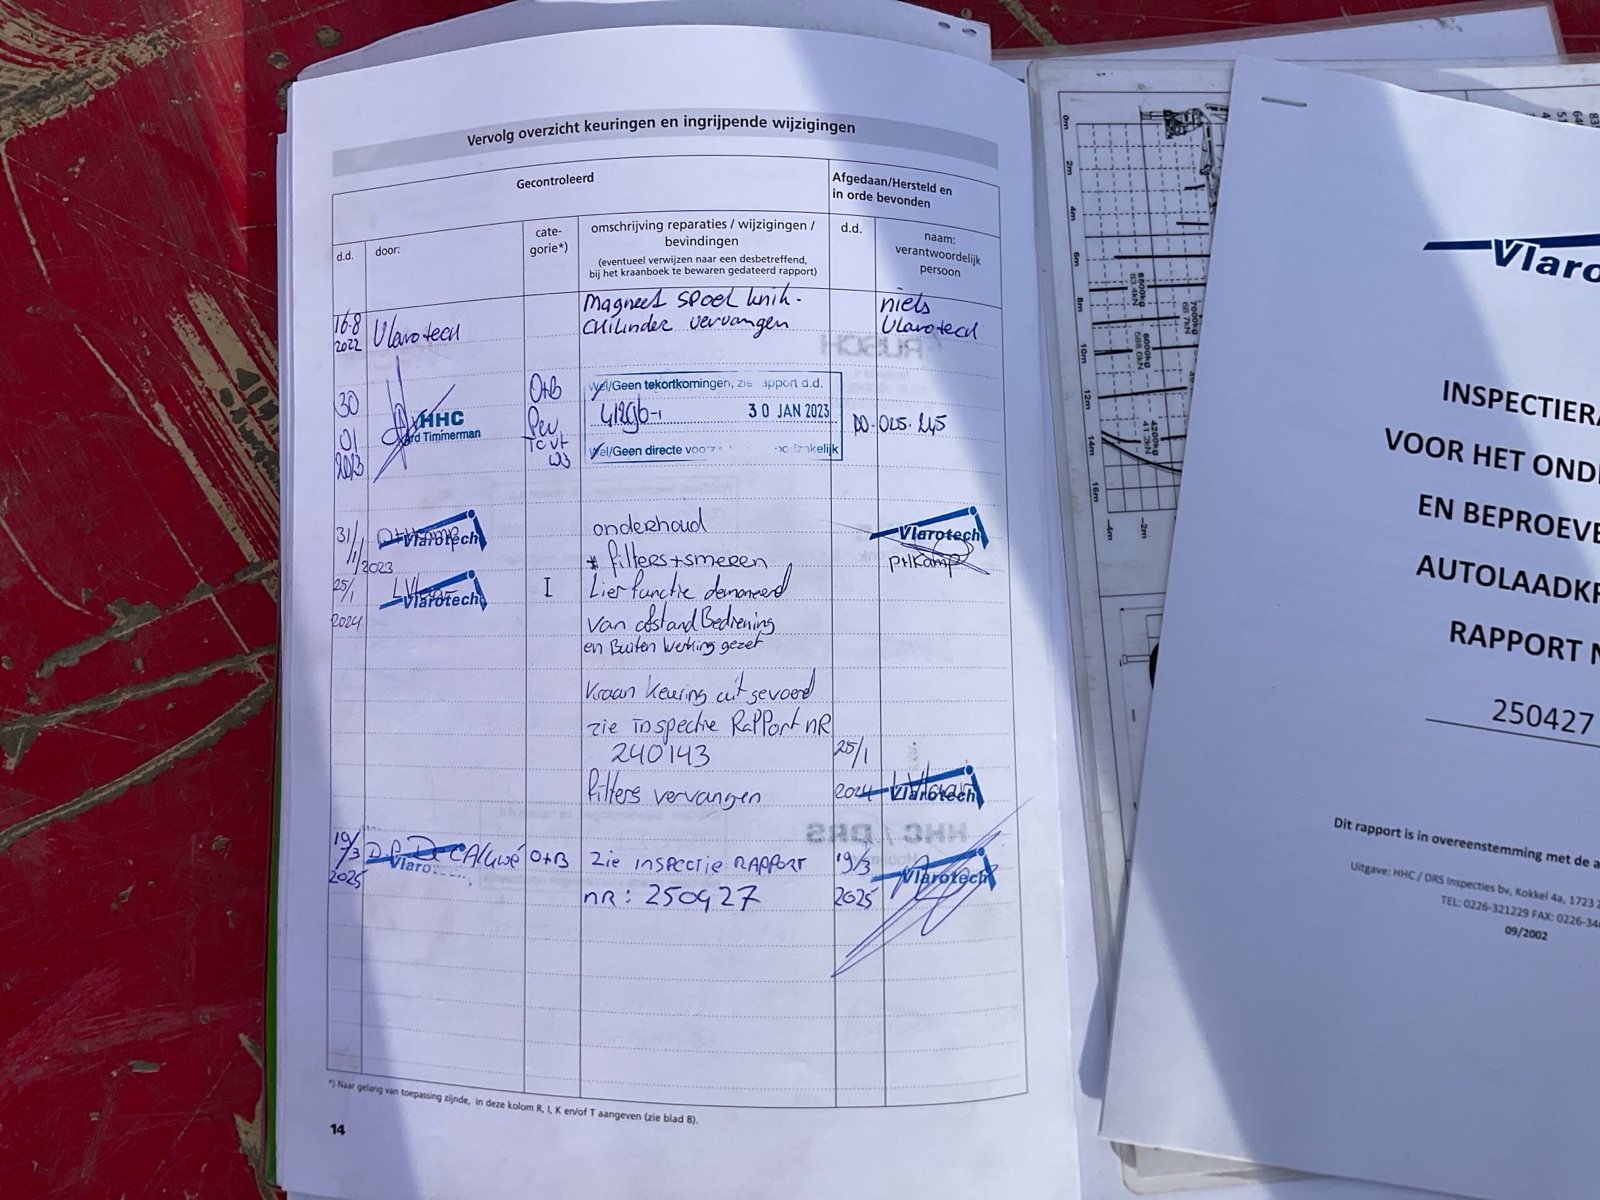 Vervolg overzicht keuringen en ingrijpende wijzigingen
Gecontroleerd
Afgedaan/Hersteld en
in orde bevonden
d.d.
door:
cate-
gorie*)
omschrijving reparaties / wijzigingen /
bevindingen
(eventueel verwijzen naar een desbetreffend,
bij het kraanboek te bewaren gedateerd rapport)
d.d.
naam:
verantwoordelijk
persoon
16-8
2022
Vlarotech
Magneet spoel knik-
Chilinder vervangen
niels
Vlarotech
30
01
2023
HHC
ard Timmerman
O+B
Wel/Geen tekortkomingen, zie rapport d.d.
30 JAN 2023
Wel/Geen directe voorz
kelijk
31/
1/
2023
Vlarotech
onderhoud
* filters+smeren
Vlarotech
PHKamp
25/
1
2024
Vlarotech
I
Lier functie demoneerd
van afstand Bediening
en Buiten werking gezet
Kraan keuring uit gevoerd
zie inspectie Rapport nR
240143
filters vervangen
25/1
2024
Vlarotech
19/
3
2025
D.P. De CAluwé
Vlaro
O+B
Zie inspectie RAPPORT
nR: 250427
19/3
2025
Vlarotech
*) Naar gelang van toepassing zijnde, in deze kolom R, I, K en/of T aangeven (zie blad 8).
14
0m
2m
4m
6m
8m
10m
12m
14m
16m
-4m
-2m
Vlaro
INSPECTIERA
VOOR HET OND
EN BEPROEVE
AUTOLAADKR
RAPPORT N
250427
Dit rapport is in overeenstemming met de a
Uitgave: HHC / DRS Inspecties bv, Kokkel 4a, 1723
TEL: 0226-321229 FAX: 0226-34
09/2002